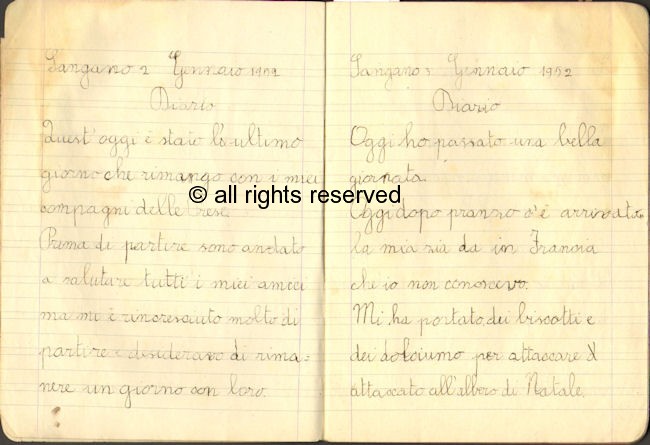 Sangano 2 Gennaio 1952
Diario
Quest'oggi è stato lo ultimo
giorno che rimango con i miei
compagni delle Prese.
Prima di partire sono andato
a salutare tutti i miei amici
ma mi è rincresciuto molto di
partire e desideravo di rima=
nere un giorno con loro.
Sangano 5 Gennaio 1952
Diario
Oggi ho passato una bella
giornata.
Oggi dopo pranzo c'è arrivato
la mia zia da in Francia
che io non conoscevo.
Mi ha portato dei biscotti e
dei dolciumo per attaccare
attaccato all'albero di Natale.
© all rights reserved